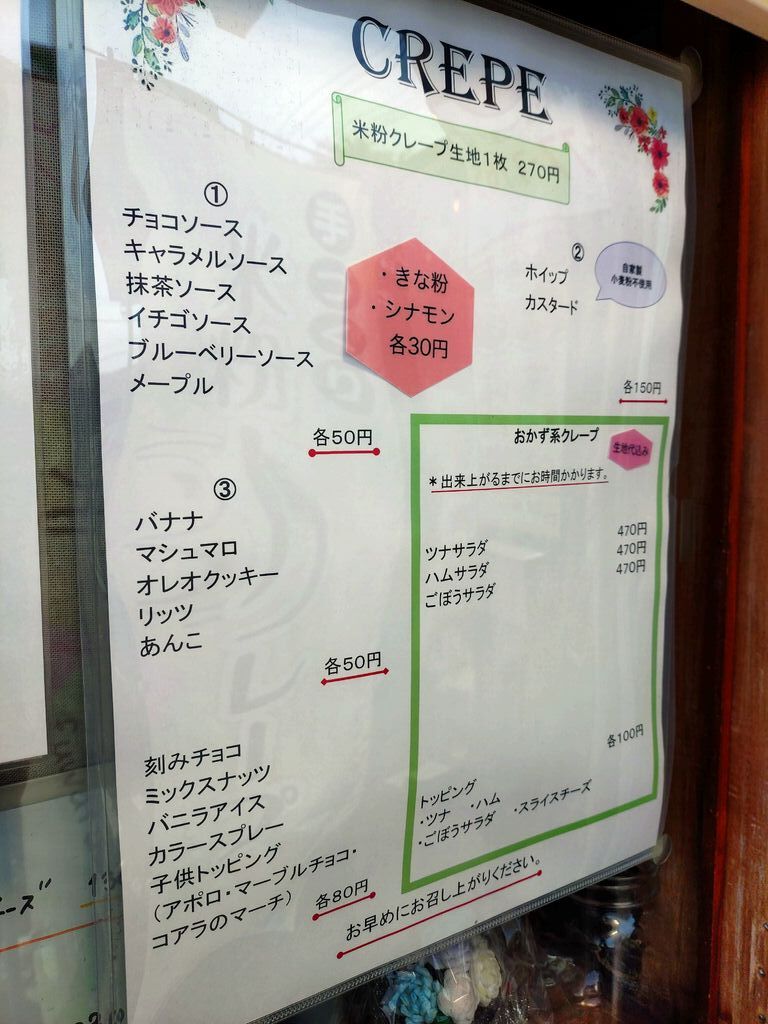 CREPE
米粉クレープ生地1枚 270円
①
チョコソース
キャラメルソース
抹茶ソース
イチゴソース
ブルーベリーソース
メープル
各50円
・きな粉
・シナモン
各30円
②
ホイップ
カスタード
自家製
小麦粉不使用
各150円
③
バナナ
マシュマロ
オレオクッキー
リッツ
あんこ
各50円
刻みチョコ
ミックスナッツ
バニラアイス
カラースプレー
子供トッピング
（アポロ・マーブルチョコ・
コアラのマーチ）
各80円
おかず系クレープ
生地代込み
＊出来上がるまでにお時間かかります。
ツナサラダ 470円
ハムサラダ 470円
ごぼうサラダ 470円
各100円
トッピング
・ツナ ・ハム ・スライスチーズ
・ごぼうサラダ
お早めにお召し上がりください。